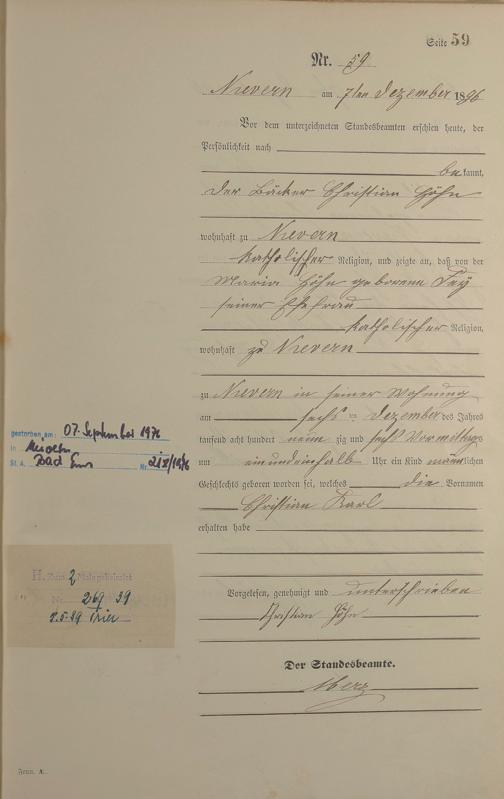 Seite 59
Nr. 59
Nievern am 7ten Dezember 1896
Vor dem unterzeichneten Standesbeamten erschien heute, der
Persönlichkeit nach
bekannt,
der Bäcker Christian Höhn
wohnhaft zu Nievern
katholischer Religion, und zeigte an, daß von der
Maria Höhn geborene Fey
seiner Ehefrau
katholischer Religion,
wohnhaft zu Nievern
zu Nievern in seiner Wohnung
am sechsten Dezember des Jahres
tausend acht hundert neunzig und sechs Vormittags
um einundeinhalb Uhr ein Kind männlichen
Geschlechts geboren worden sei, welches die Vornamen
Christian Karl
erhalten habe
Vorgelesen, genehmigt und unterschrieben
Christian Höhn
Der Standesbeamte.
Merz
gestorben am: 07. September 1976
in
St. A. Bad Ems Nr.
H. 2
Nr. 269 39
2.5.39 Trier
Form. A.